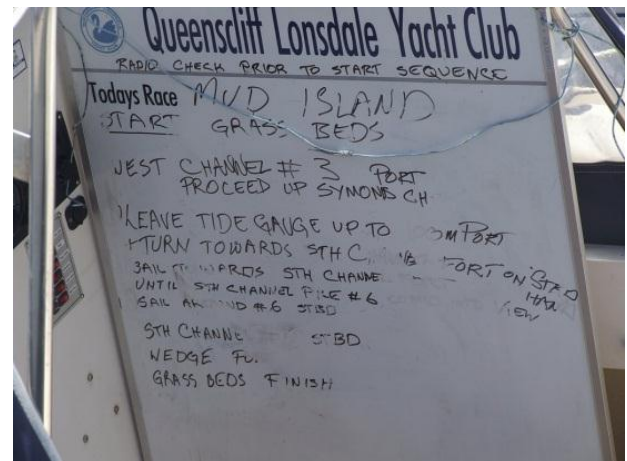 Queenscliff Lonsdale Yacht Club
RADIO CHECK PRIOR TO START SEQUENCE
Todays Race MUD ISLAND
START GRASS BEDS
WEST CHANNEL # 3 PORT
PROCEED UP SYMONDS CH
LEAVE TIDE GAUGE UP TO PORT
TURN TOWARDS STH FORT ON STBD
HAND
SAIL TOWARDS STH CHANNEL
VIEW
UNTIL STH CHANNEL PILE # 6
SAIL AROUND #6 STBD
STH CHANNE STBD
WEDGE
GRASS BEDS FINISH